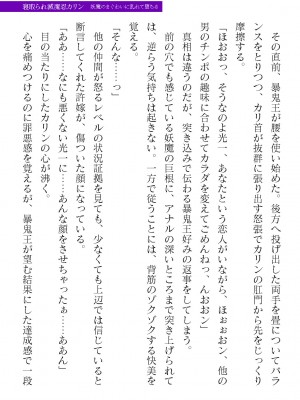 寝取られ滅魔忍カリン　妖魔のまぐわいに乱れて堕ちる
その直後、暴鬼王が腰を使い始めた。後方へ投げ出した両手を畳についてバラ
ンスをとりつつ、カリ首が抜群に張り出す怒張でカリンの肛門から先をじっくり
摩擦する。
「ほおおっ、そうなのよ光一、あなたという恋人がいながら、ほぉぉおン、他の
男のチンポの趣味に合わせてカラダを変えてごめんねっ、んおおン」
真相は違うのだが、突き込みで伝わる暴鬼王好みの返事をしてしまう。
前の穴でも感じている妖魔の巨根に、アナルの深いところまで突き上げられて
は、逆らう気持ちは起きない。一方で従うことには、背筋のゾクゾクする快美を
「そんな……っ」
他の仲間が怒るレベルの状況証拠を見ても、少なくても上辺では信じていると
断言してくれた許嫁が、傷ついた顔になっている。
「ああ……なにも悪くない光一に……あんな顔をさせちゃったぁ……ああん」
目の当たりにしたカリンの心が沸く。
心を痛めつけるのに罪悪感を覚えるが、暴鬼王が望む結果にした達成感で一段